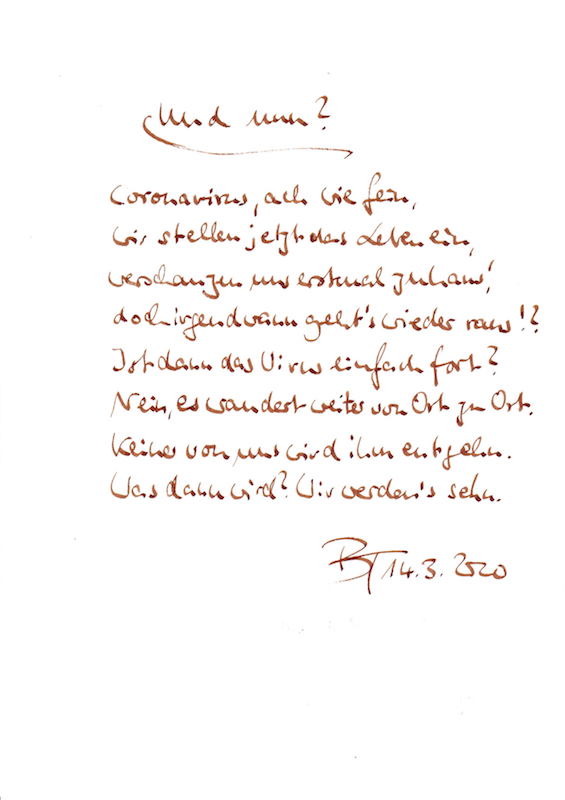 Und nun?
Coronavirus, ach wie fein,
wir stellen jetzt das Leben ein,
verschanzen uns erstmal zuhaus',
doch irgendwann geht's wieder raus!?
Ist dann das Virus einfach fort?
Nein, es wandert weiter von Ort zu Ort.
Keiner von uns wird ihm entgehn.
Was dann wird? Wir werden's sehn.
BT 14.3.2020